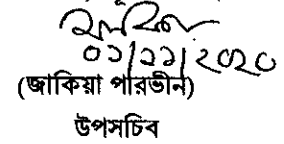 ০১/১১/২০২০
(জাকিয়া পারভীন)
উপসচিব